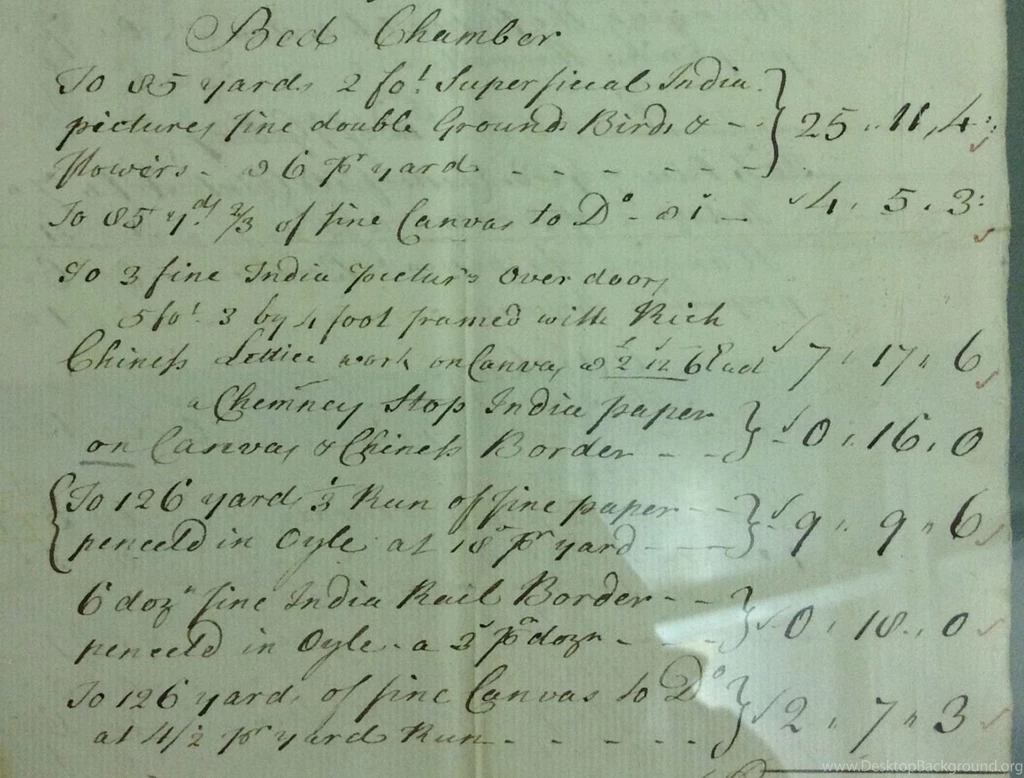 Bed Chamber
To 85 yards 2 fot Superficeal India
pictures fine double Ground Birds & - - 25 . 11 . 4
flowers - a 6 pr yard - - - - - -
To 85 yds 2/3 of fine Canvas to Do - a 1 - 4 . 5 . 3
To 3 fine India pictures Over doors
5 fot 3 by 4 foot framed with Rich
Chiness Lettice work on Canvas a 2 12 6 Each 7 . 17 . 6
a Chemney Stop India paper
on Canvas & Chiness Border - - - 0 . 16 . 0
To 126 yards 1/3 Run of fine paper - -
penceld in Oyle at 18 pr yard - - - 9 . 9 . 6
6 dozn fine India Rail Border - -
penceld in Oyle - a 3 pr dozn - - 0 . 18 . 0
To 126 yards of fine Canvas to Do
at 4 1/2 pr yard Run - - - - - - 2 . 7 . 3
www.DesktopBackground.org